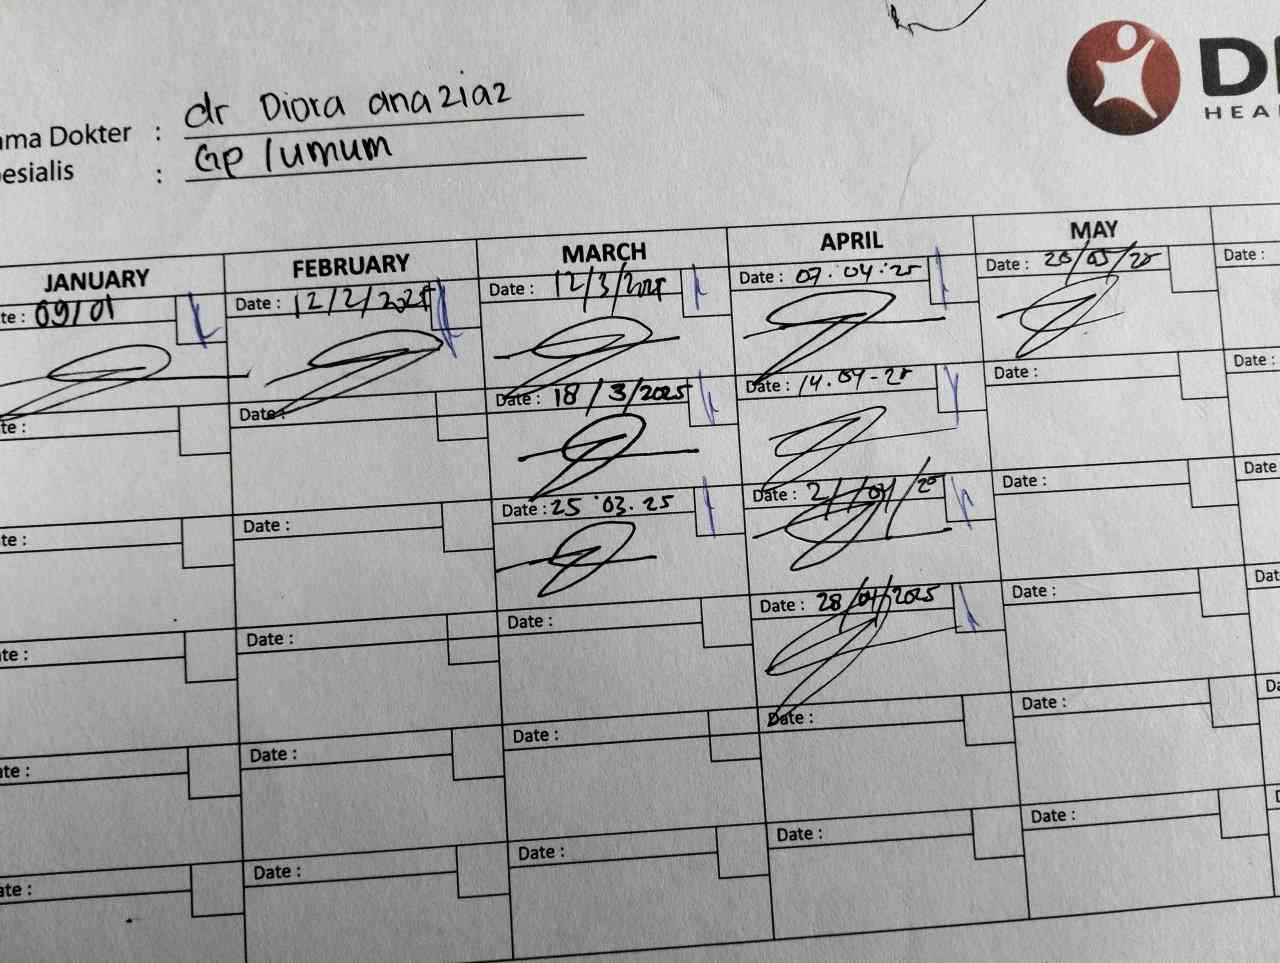 DI
HEA
ama Dokter : dr Diora anaziaz
esialis : GP / umum
JANUARY FEBRUARY MARCH APRIL MAY
te : 09/01 Date : 12/2/2025 Date : 12/3/2025 Date : 07.04.25 Date : Date :
te : Date : Date : 18/3/2025 Date : 14.04-25 Date : Date :
te : Date : Date : 25.03.25 Date : 21/04/25 Date : Date
te : Date : Date : Date : 28/04/2025 Date : Dat
te : Date : Date : Date : Date : Da
te : Date : Date : Date : Date : D